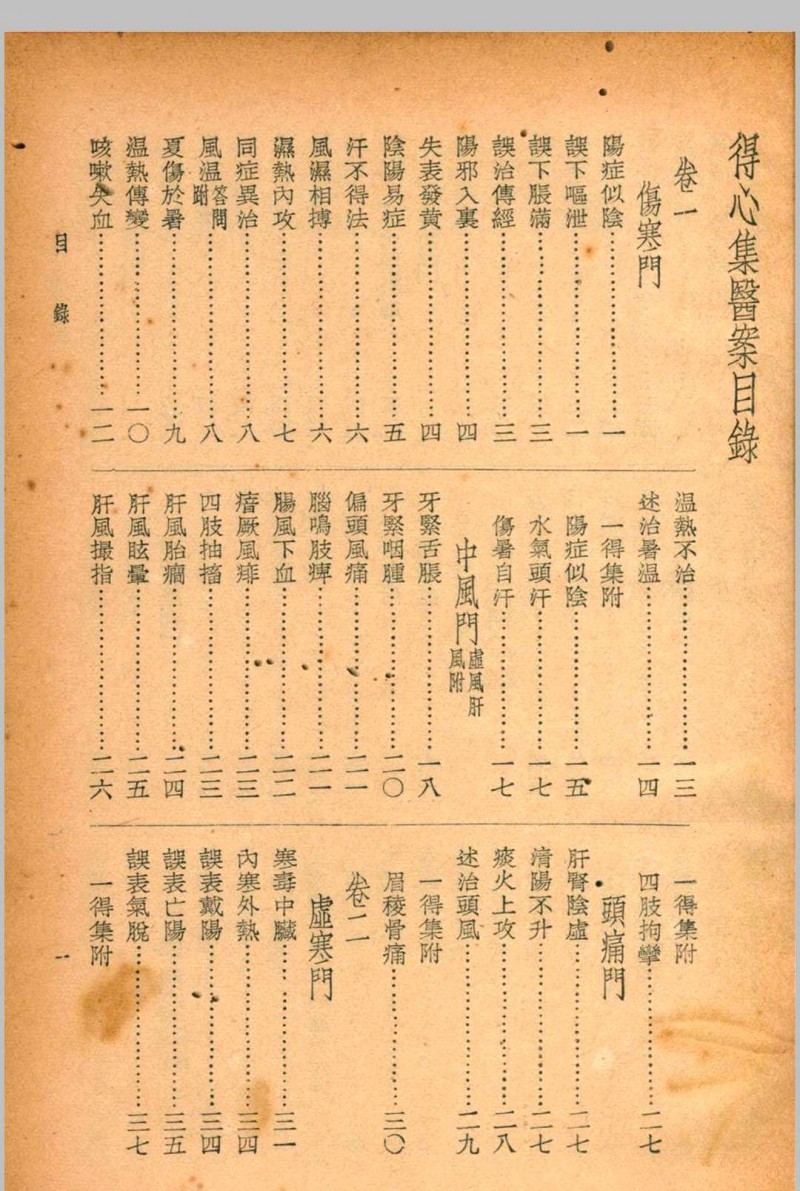 得心集醫案目錄
卷一
傷寒門
陽症似陰……一
誤下嘔泄……一
誤下脹滿……三
誤治傳經……三
陽邪入裏……四
失表發黃……四
陰陽易症……五
汗不得法……六
風濕相搏……六
濕熱內攻……七
同症異治……八
風温 答問附……八
夏傷於暑……九
温熱傳變……一〇
咳嗽失血……一二
温熱不治……一三
述治暑温……一四
一得集附
陽症似陰……一五
水氣頭汗……一七
傷暑自汗……一七
中風門 虛風肝風附
牙緊舌脹……一八
牙緊咽腫……二〇
偏頭風痛……二一
腦鳴肢痺……二一
腸風下血……二二
瘖厥風痱……二三
四肢抽搐……二三
肝風胎癇……二四
肝風眩暈……二五
肝風撮指……二六
一得集附
四肢拘攣……二七
頭痛門
肝腎陰虛……二七
清陽不升……二七
痰火上攻……二八
述治頭風……二九
一得集附
眉稜骨痛……三〇
卷二
虛寒門
寒毒中臟……三一
內寒外熱……三四
誤表戴陽……三四
誤表亡陽……三五
誤表氣脫……三七
一得集附
目錄
一